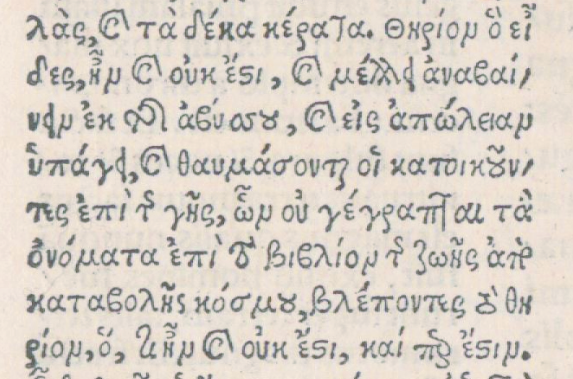 λὰς, καὶ τὰ δέκα κέρατα. Θηρίον ὃ εἶ
δες, ἦν καὶ οὐκ ἔστι, καὶ μέλλει ἀναβαί/
νειν ἐκ τῆς ἀβύσσου, καὶ εἰς ἀπώλειαν
ὑπάγει, καὶ θαυμάσονται οἱ κατοικοῦν/
τες ἐπὶ τῆς γῆς, ὧν οὐ γέγραπται τὰ
ὀνόματα ἐπὶ τὸ βιβλίον τῆς ζωῆς ἀπὸ
καταβολῆς κόσμου, βλέποντες τὸ θη
ρίον, ὅ, τι ἦν καὶ οὐκ ἔστι, καί περ ἔστιν.